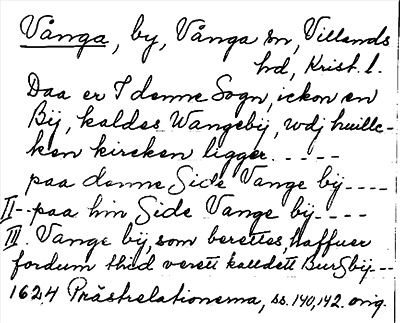 Vånga, by, Vånga sn, Villands
hd, Krist. l.
Daa er I denne Sogn, ickon en
Bij, kaldes Wangebij, wdj huilc-
ken kircken ligger. - - - -
paa denne Side Vange bij - - - -
II - - paa hin Side Vange bij - - - -
III. Vange bij, som berettes, haffuer
fordum thid verett kalldett Burgbij - - -
1624 Prästrelationerna, ss. 140, 142. orig.